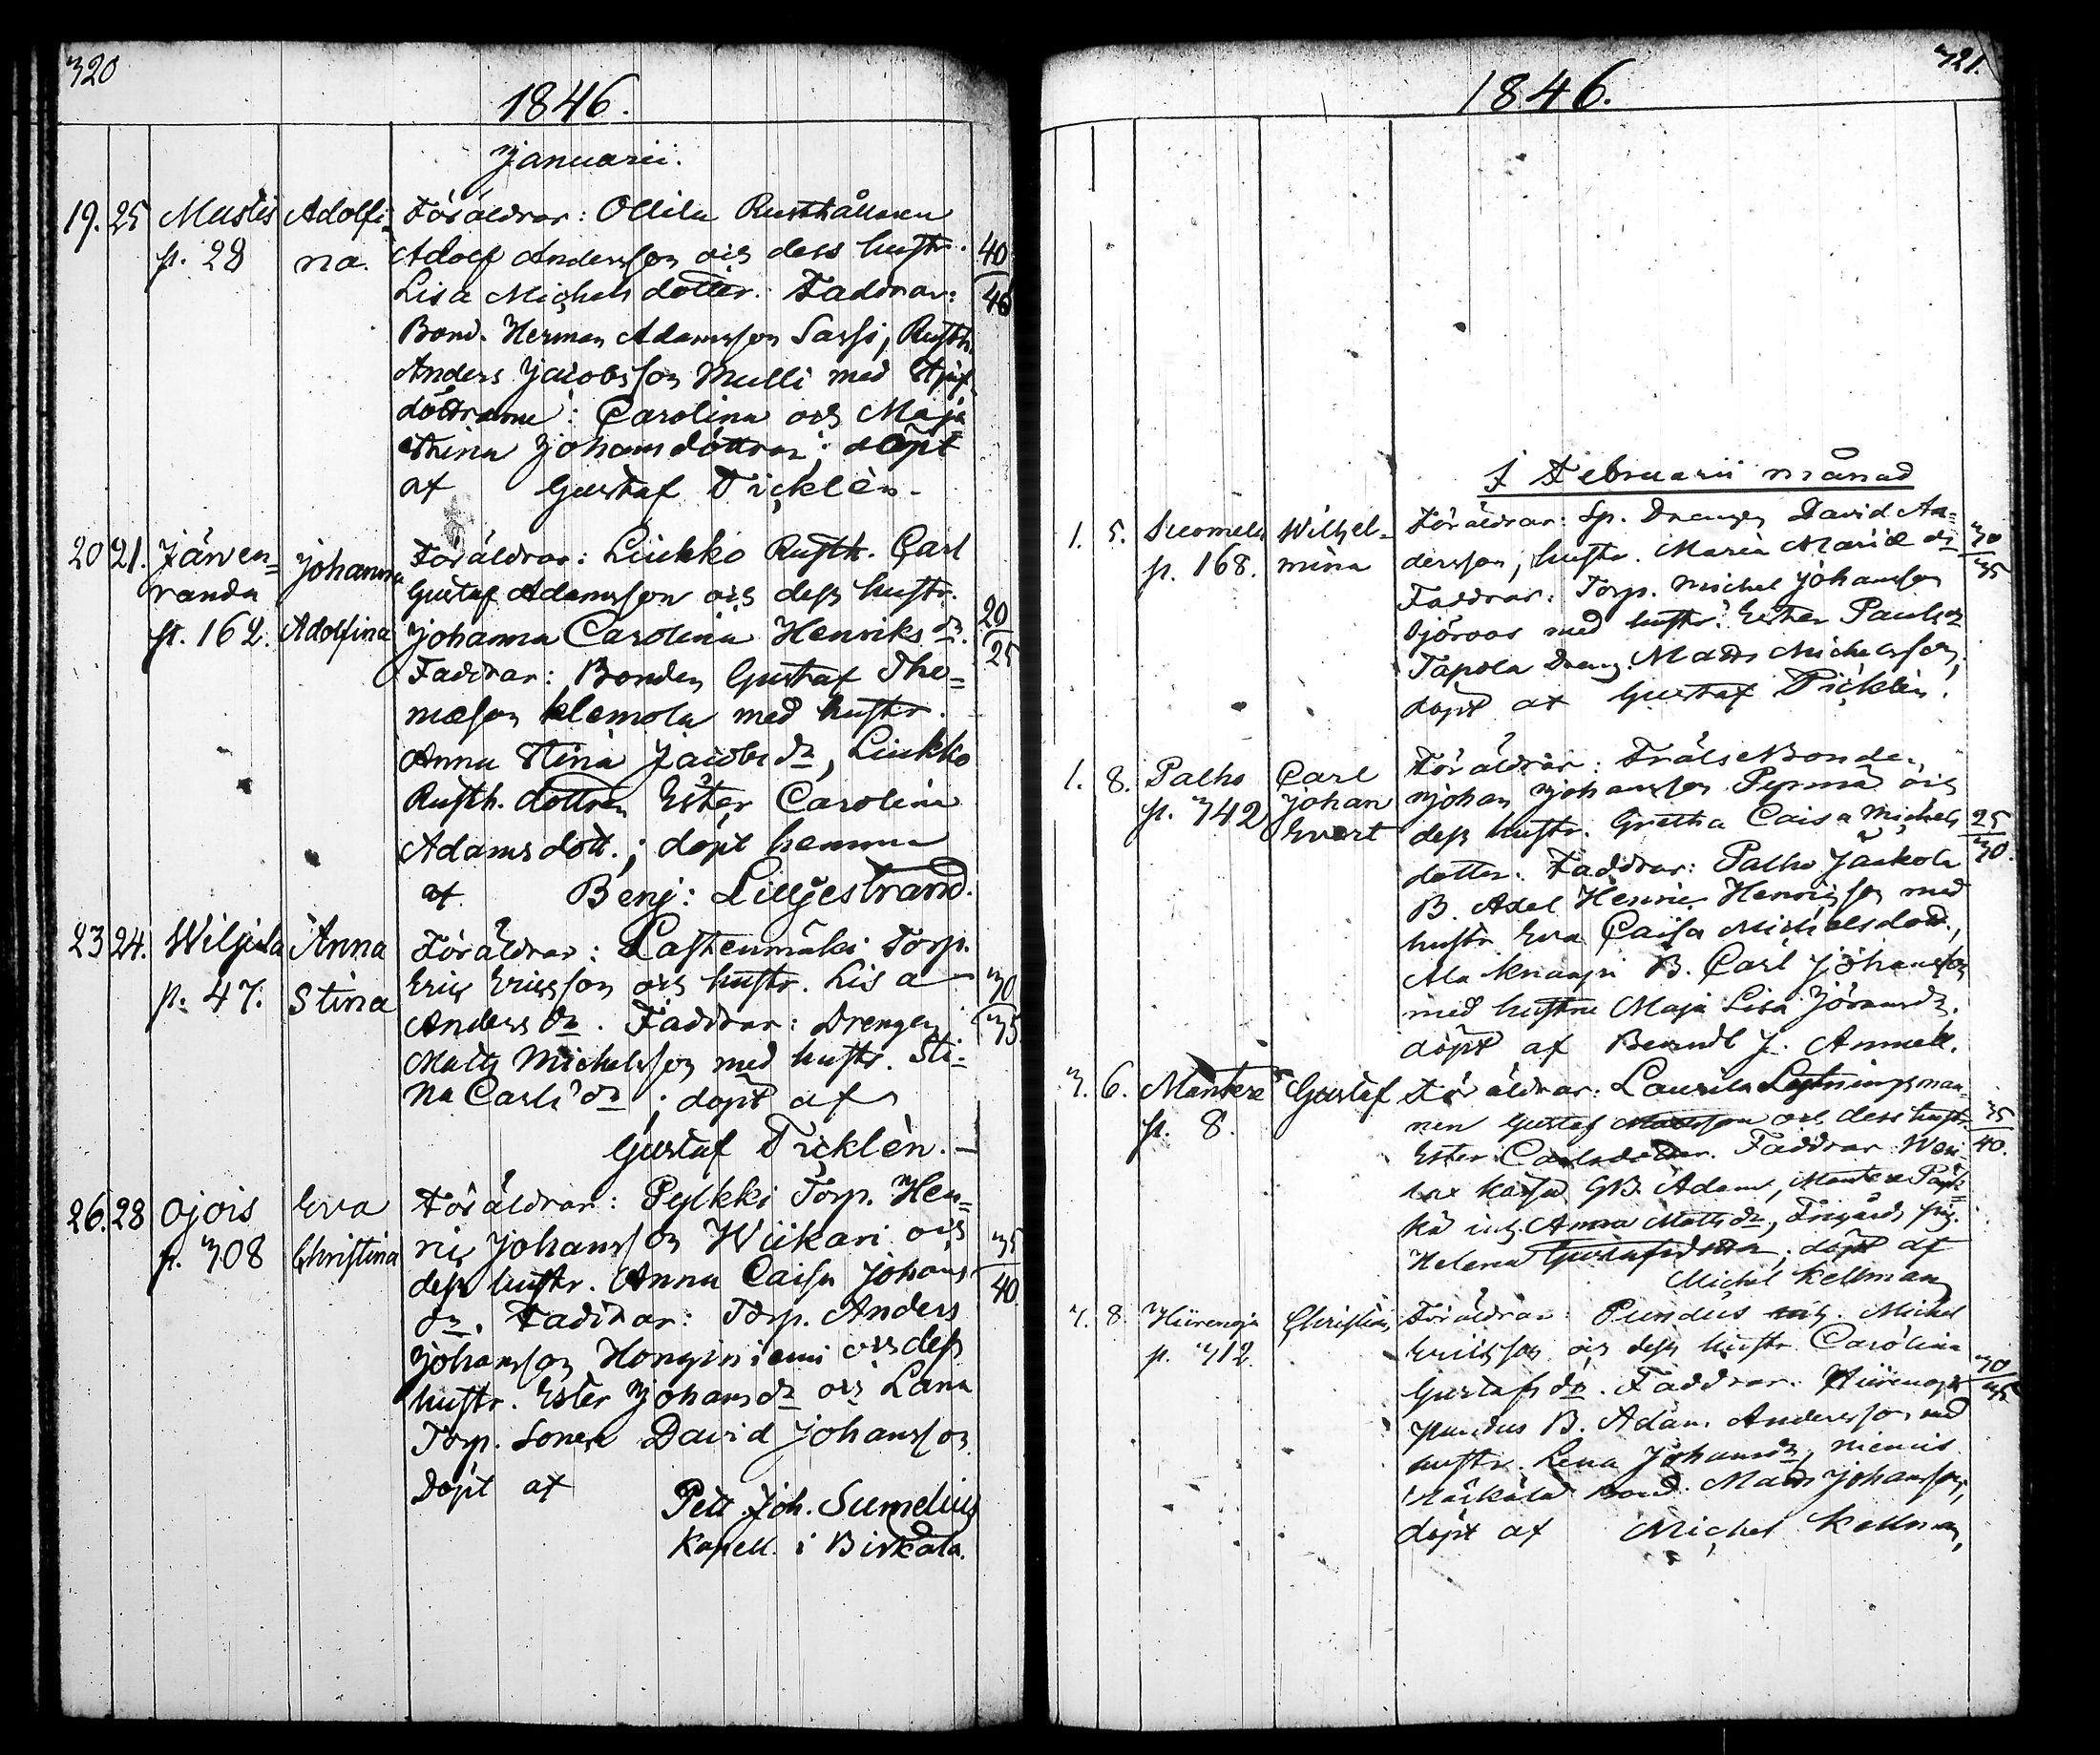 320
1846.
Januarii.
19. 25 Mustis Adolfi- Föräldrar: Ollila Rusthållaren
p. 28 na. Adolf Andersson och dess hustr. 40
Lisa Michels dotter. Faddrar: 45
Bond. Herman Adamsson Sassi, Rusth.
Anders Jacobsson Mulli med Stjuf
döttrarne: Carolina och Maja
Stina Johansdöttrar; döpt
af Gustaf Ticklèn.
20 21. Järven= Johanna Föräldrar: Liukko Rusth. Carl
randa Gustaf Adamsson och dess hustr.
p. 162. Adolfina Johanna Carolina Henriks dr. 20
25
Faddrar: Bonden Gustaf Tho=
mæson Klemola med hustr.
Anna Stina Jacobs dr, Liukko
Rusth. dottren Ester Carolina
Adamsdott.; döpt hemma
af Benj: Lilljestrand.
23 24. Wiljula Anna Föräldrar: Lastenmäki Torp.
Eric Ericsson och hustr. Lisa 30
p. 47. Stina Anders dr. Faddrar: Drengen 35
Matts Michelsson med hustr. Sti=
na Carls dr; döpt af
Gustaf Ticklèn.
26. 28 Ojois Eva Föräldrar: Pylkki Torp. Hen=
p. 308 Christina ric Johansson Wiikari och 35
dess hustr. Anna Caisa Johans 40
dr. Faddrar: Torp. Anders
Johansson Honginiemi och dess
hustr. Ester Johans dr och Lana
Torp. Sonen David Johansson
Döpt af Pett. Joh. Sumelius
Kapell. i Birkala.
321.
1846.
I Februarii månad
1. 5. Suomela Wilhel= Föräldrar: Sp. Drengen David An=
p. 168. mina dersson, hustr. Maria Mariæ dr 30
35
Faddrar: Torp. Michel Johansson
Sjöroos med hustr. Ester Pauls dr
Tapola Dreng Matts Michelsson,
döpt af Gustaf Ticklèn.
1. 8. Palho Carl Föräldrar: Frälse Bonden
p. 342 Johan Johan Johansson och
Evert dess hustr. Gretha Caisa Michels 25
dotter. Faddrar: Palho Jaakola 30.
B. Axel Henric Henricsson med
hustr Eva Caisa Michelsdott.,
Ala Knaapi B. Carl Johansson
med hustru Maja Lisa Jöransdr.
döpt af Berndt J. Annell.
3. 6. Mantere Gustaf Föräldrar: Laurila
p. 8. nen Gustaf Mattsson och dess hustr 35
40.
Ester Carlsdotter. Faddrar
GB. Adam, Mantere
kä inh. Anna Matts dr, pig.
Helena Gustafsdotter; döpt af
Michel Kellman
3. 8. Hiirenoja Christian Föräldrar: Pundus inh. Michel
p. 312 Ericsson och dess hustr Carolina
Gustafs dr. Faddrar. Hiirenoja 30
35
pundus B. Adam Andersson med
hustr. Lena Johansdr, niemis
Bond. Matts Johansson,
döpt af Michel Kellman,